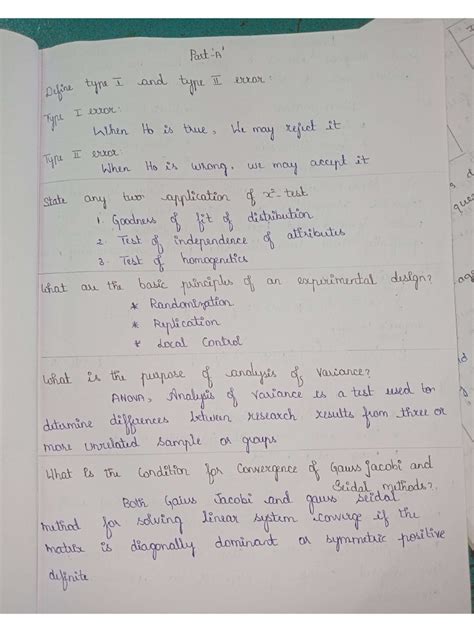 Part-'A'
Define type I and type II error:
Type I error:
When Ho is true, We may reject it
Type II error:
When Ho is wrong, we may accept it
State any two application of x²-test
1. Goodness of fit of distribution
2. Test of independence of attributes
3. Test of homogenetics
What are the basic principles of an experimental design?
* Randomization
* Replication
* Local Control
What is the purpose of analysis of Variance?
ANOVA, Analysis of variance is a test used to
determine differences between research results from three or
more unrelated sample or groups
What is the Condition for Convergence of Gauss Jacobi and
Seidal methods?
Both Gauss Jacobi and gauss seidal
method for solving linear system converge if the
matrix is diagonally dominant or symmetric positive
definite